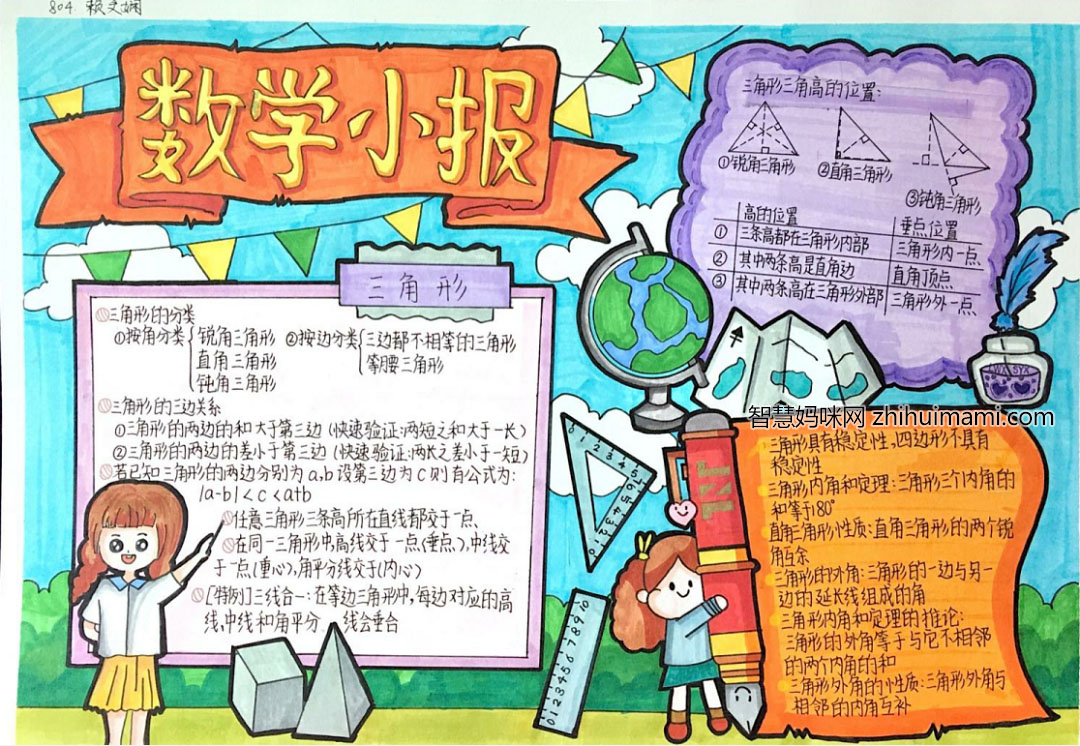 804 赖文娴
数学小报
三角形三角高的位置:
①锐角三角形 ②直角三角形
③钝角三角形
高的位置 垂点位置
① 三条高都在三角形内部 三角形内一点
② 其中两条高是直角边 直角顶点
③ 其中两条高在三角形外部 三角形外一点
三角形
三角形的分类
①按角分类 锐角三角形 ②按边分类 三边都不相等的三角形
直角三角形 等腰三角形
钝角三角形
三角形的三边关系
①三角形的两边的和大于第三边(快速验证:两短之和大于一长)
②三角形的两边的差小于第三边(快速验证:两长之差小于一短)
若已知三角形的两边分别为a,b设第三边为c则有公式为:
|a-b|<c<a+b
任意三角形三条高所在直线都交于一点
在同一三角形中,高线交于一点(垂点),中线交
于一点(重心),角平分线交于(内心)
[特例]三线合一:在等边三角形中,每边对应的高
线,中线和角平分 线会垂合
智慧妈咪网 zhihuimami.com
三角形具有稳定性,四边形不具有
稳定性
三角形内角和定理:三角形三个内角的
和等于180°
直角三角形性质:直角三角形的两个锐
角互余
三角形的外角:三角形的一边与另一
边的延长线组成的角
三角形内角和定理的推论:
三角形的外角等于与它不相邻
的两个内角的和
三角形外角的性质:三角形外角与
相邻的内角互补
0 1 2 3 4 5 6 7 8 9 10